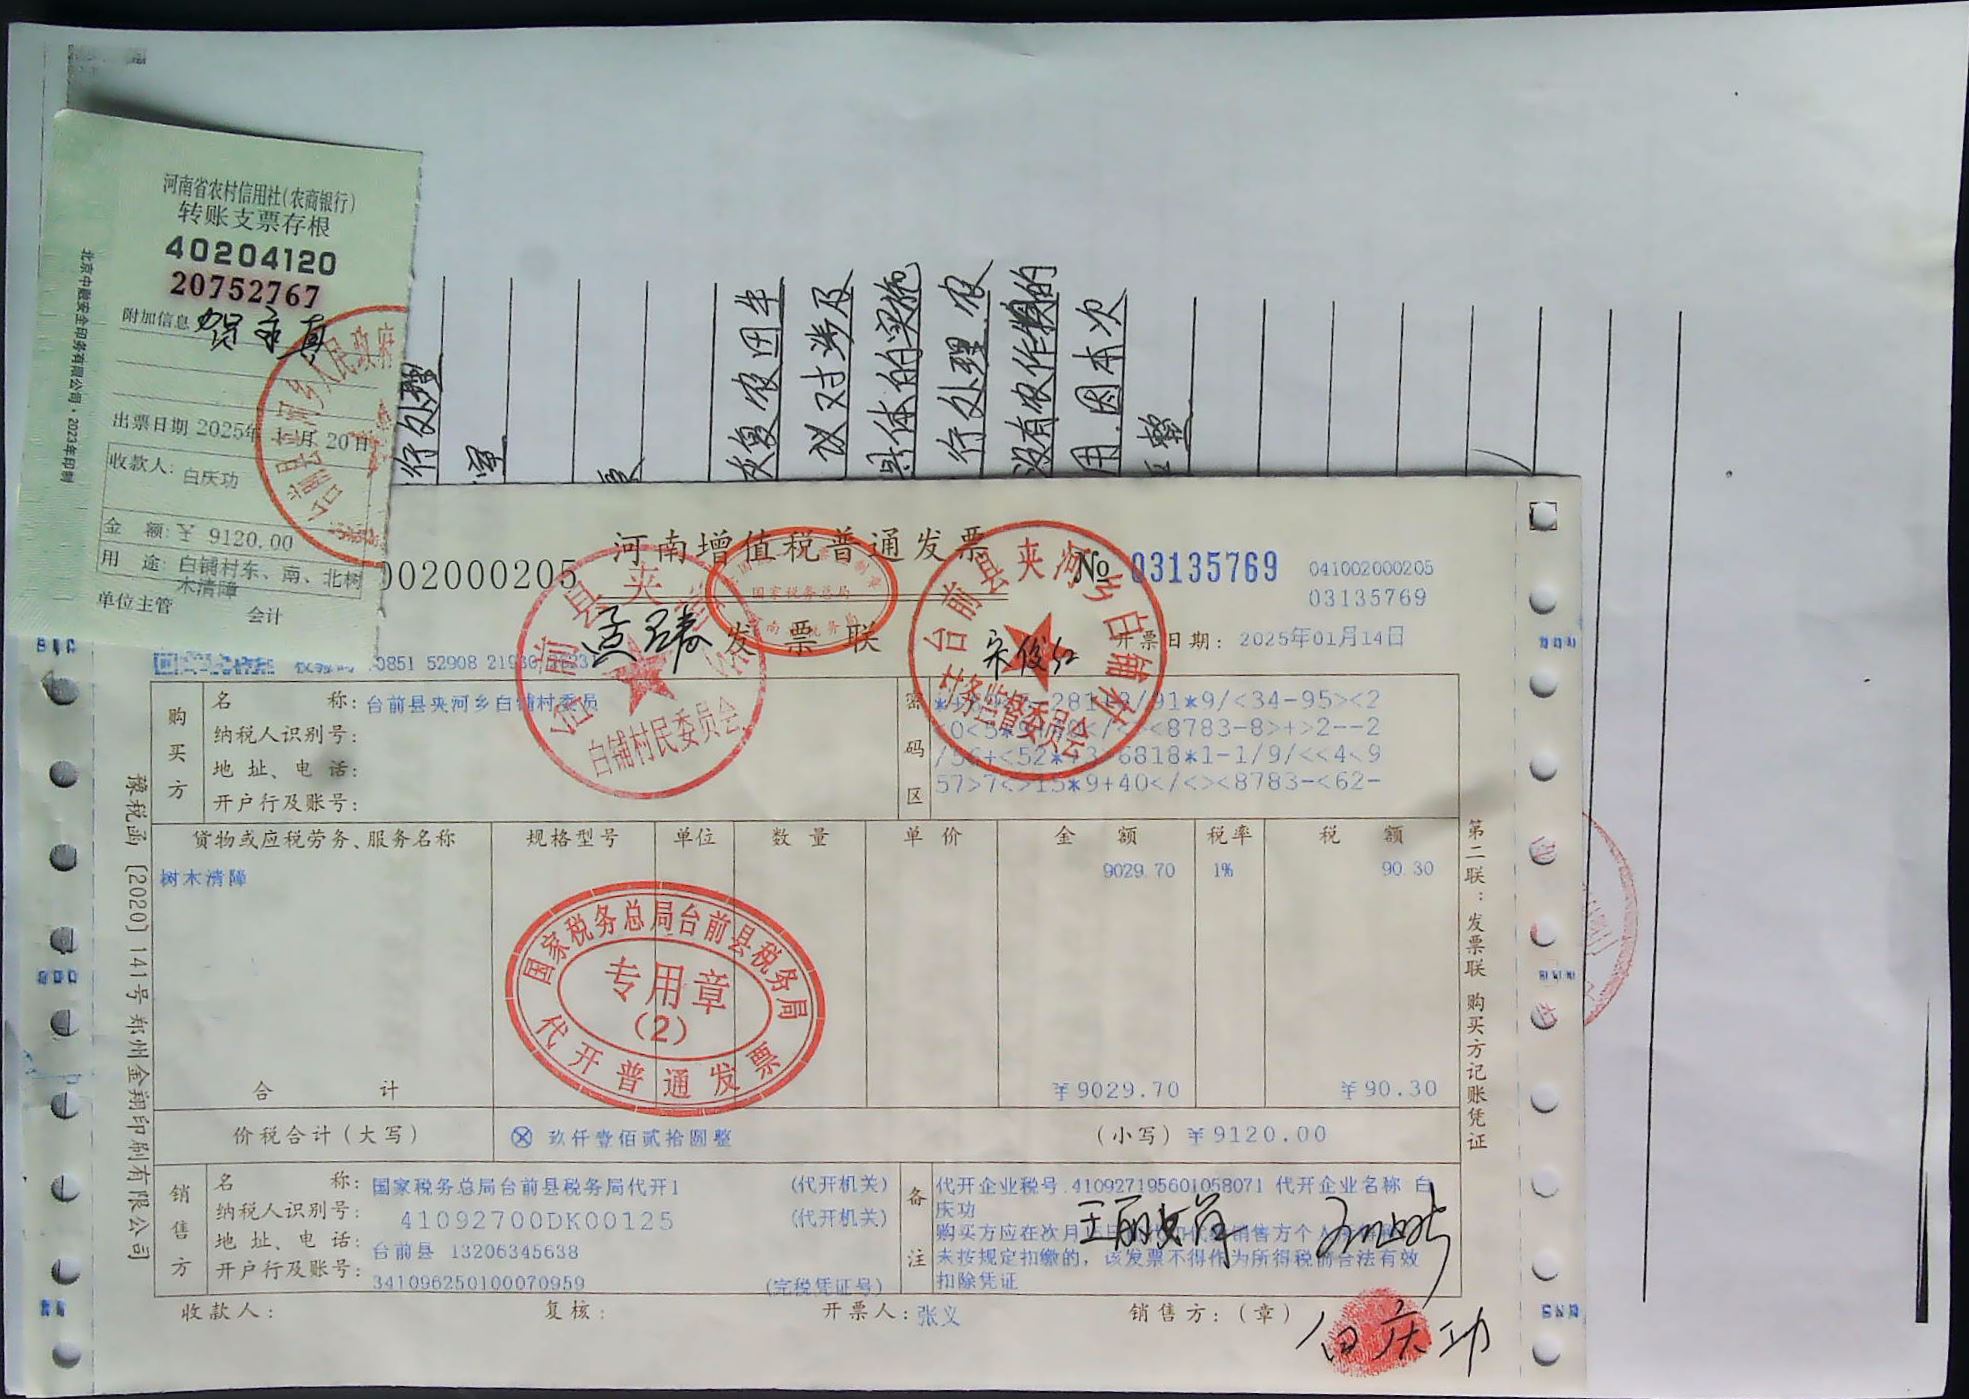 河南省农村信用社(农商银行)
转账支票存根
40204120
20752767
附加信息 贺永真
出票日期 2025年1月20日
收款人: 白庆功
金 额: ¥ 9120.00
用 途: 白铺村东、南、北树
木清障
单位主管 会计
北京中融安全印务有限公司·2023年印制
台前县夹河乡人民政府
行处理
恢复农田牛
议对涉及
具体的实施
行处理.农
没有农作物的
用.因本次
河南增值税普通发票
002000205
№ 03135769
041002000205
03135769
国家税务总局
发票联
开票日期: 2025年01月14日
0851 52908 21930
白铺村民委员会
台前县夹河乡白铺村
村务监督委员会
宋俊红
购买方
名 称: 台前县夹河乡白铺村委员
纳税人识别号:
地 址、电 话:
开户行及账号:
密码区
91*9/<34-95><2
<8783-8>+>2--2
6818*1-1/9/<<4<9
57>7<>15*9+40</<><8783-<62-
货物或应税劳务、服务名称 规格型号 单位 数 量 单 价 金 额 税率 税 额
树木清障 9029.70 1% 90.30
国家税务总局台前县税务局
专用章
(2)
代开普通发票
合 计 ¥9029.70 ¥90.30
价税合计(大写) ⊗ 玖仟壹佰贰拾圆整 (小写) ¥9120.00
销售方
名 称: 国家税务总局台前县税务局代开1 (代开机关)
纳税人识别号: 41092700DK00125 (代开机关)
地 址、电 话: 台前县 13206345638
开户行及账号: 341096250100070959 (完税凭证号)
备注
代开企业税号:410927195601058071 代开企业名称:白
庆功
购买方应在次月 销售方个人
未按规定扣缴的，该发票不得作为所得税前合法有效
扣除凭证
收款人: 复核: 开票人: 张义 销售方:(章)
白庆功
豫税函〔2020〕141号郑州金翔印刷有限公司
第二联:发票联 购买方记账凭证